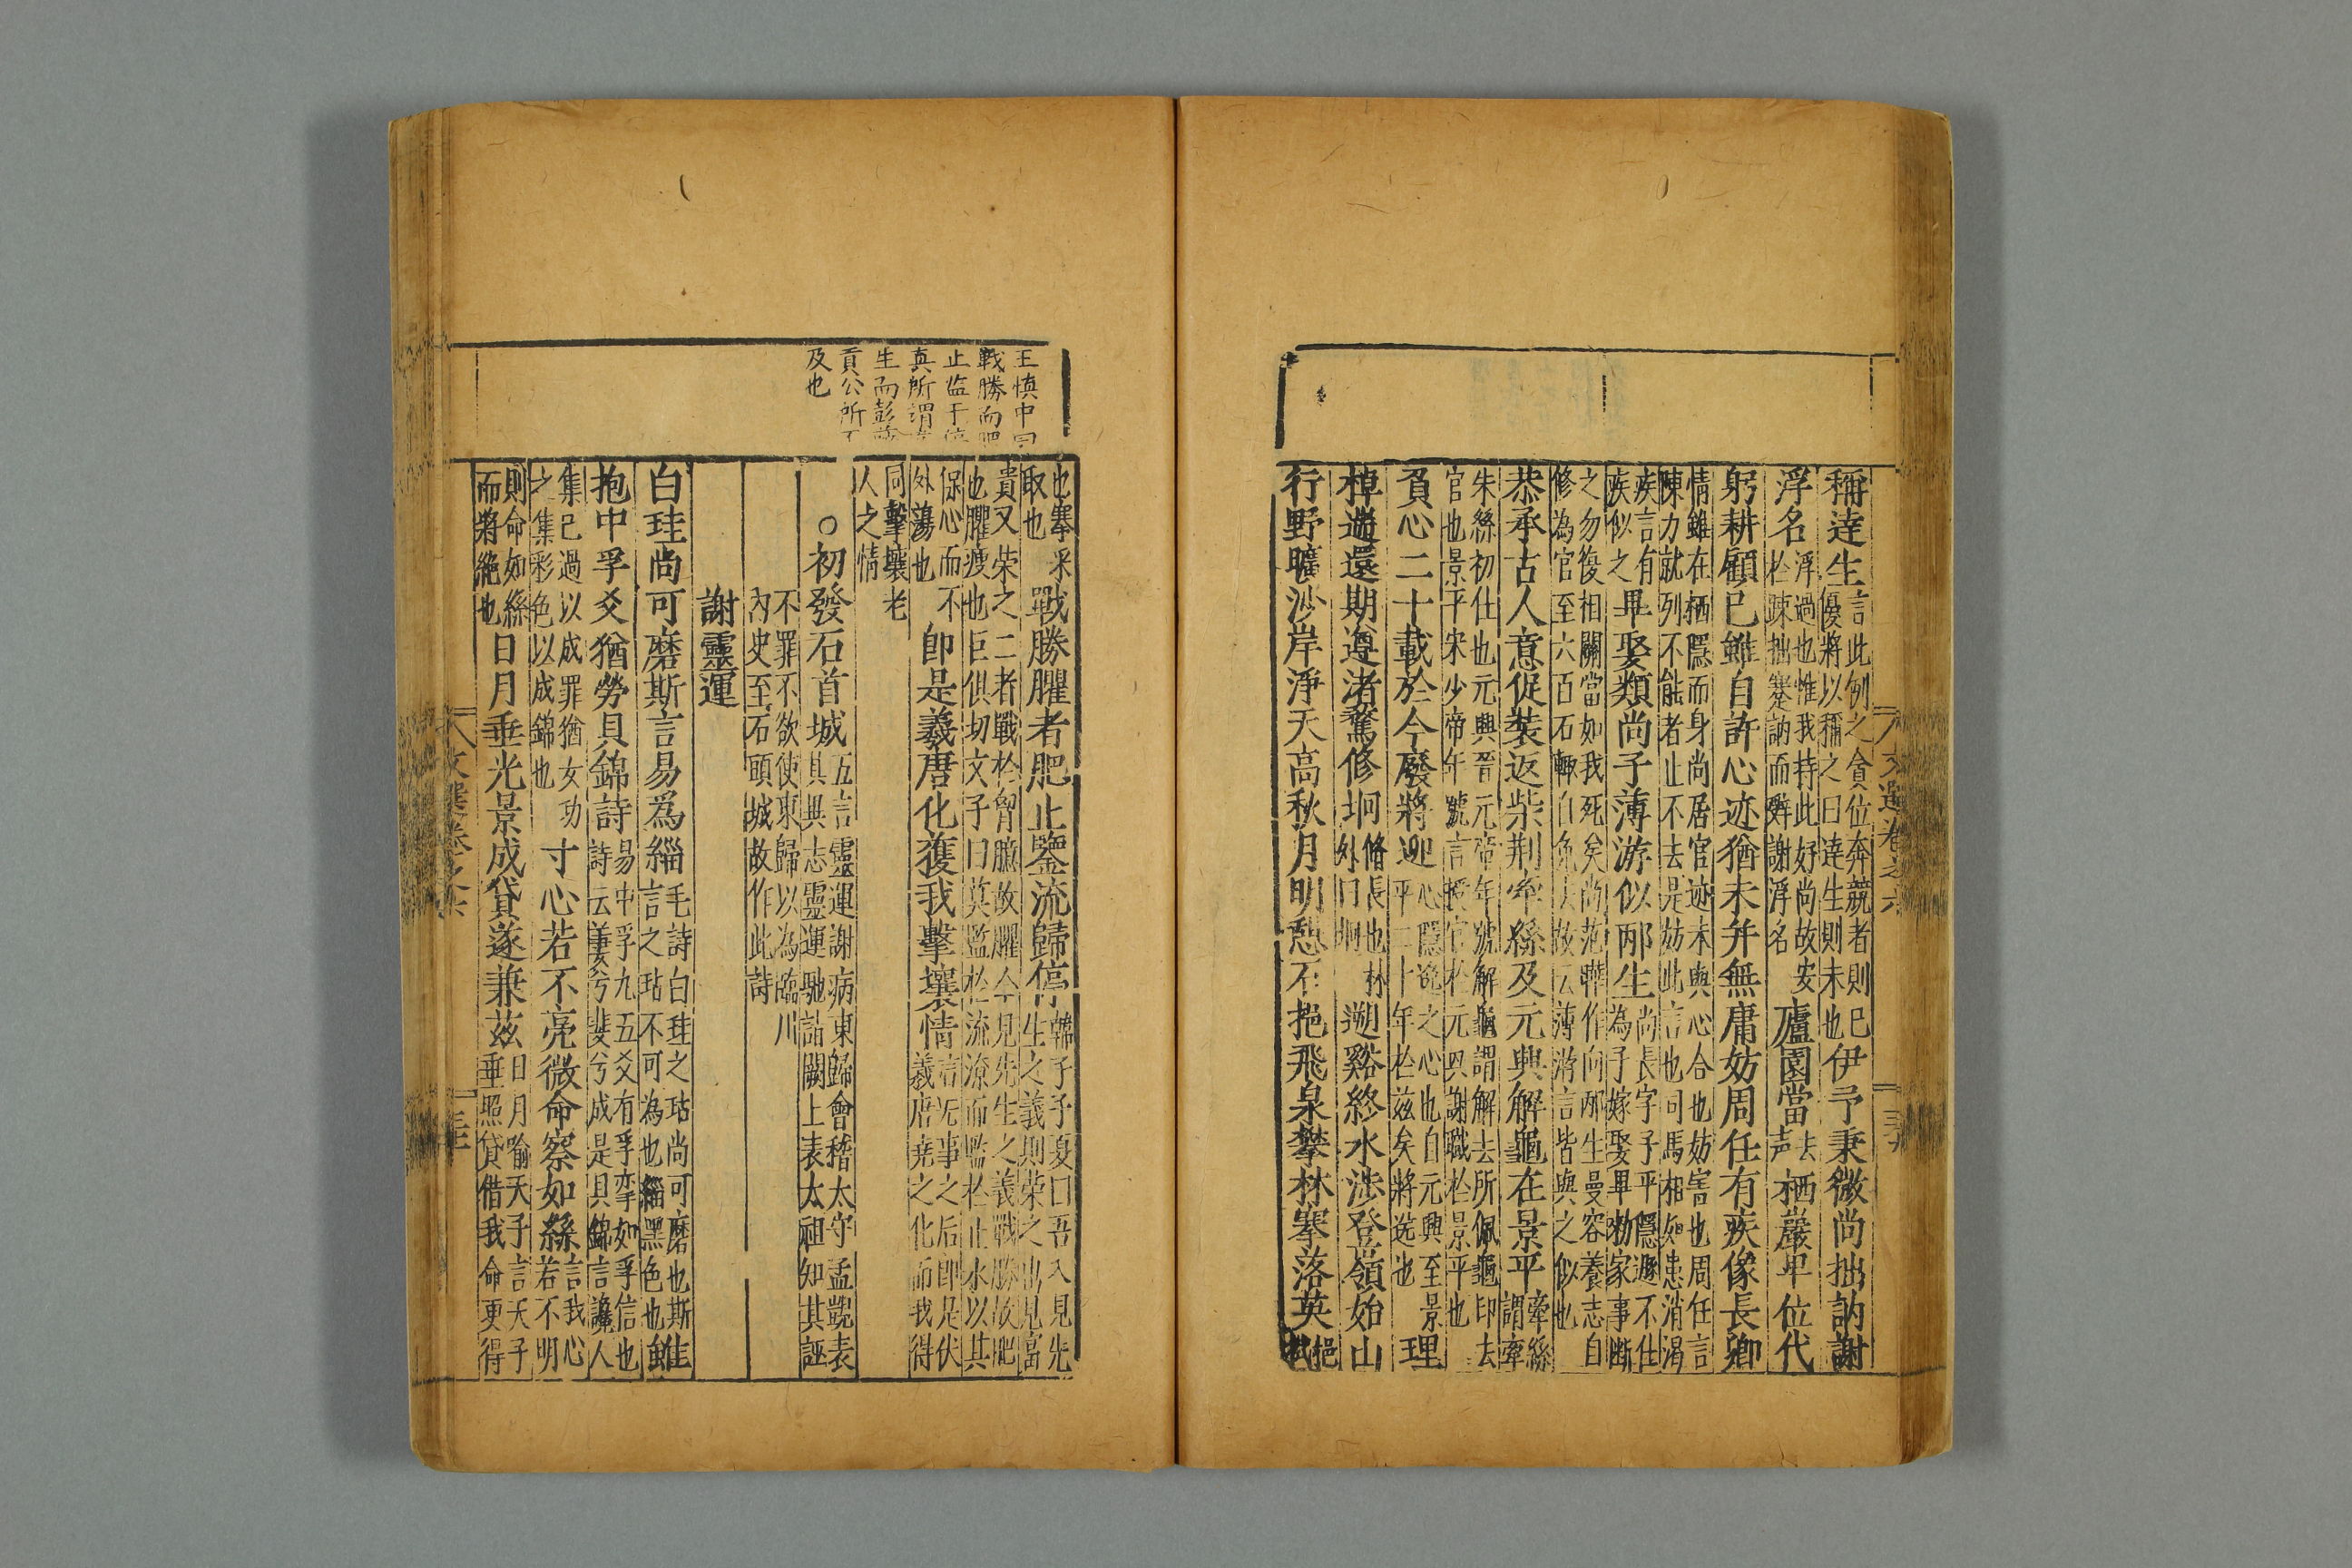 稱達生言此例之貪位奔競者則已
優將以稱之曰達生則未也伊予秉微尚拙訥謝
浮名浮過也惟我持此好尚故安
於疎拙蹇訥而辭謝浮名廬園當去声栖巖卑位代
躬耕顧已雖自許心迹猶未并無庸妨周任有疾像長卿
情雖在栖隱而身尚居官迹未與心合也妨害也周任言
陳力就列不能者止不去是妨此言也司馬相如患消渴
疾言有
疾似之畢娶類尚子薄游似邴生尚長字子平隱遯不仕
為子嫁娶畢勑家事斷
之勿復相關當如我死矣尚范曄作向邴生曼容養志自
修為官至六百石輒自免去故云薄游言皆與之似也
恭承古人意促裝返柴荆牽絲及元興解龜在景平牽絲
謂牽
朱絲初仕也元興晉元帝年號解龜謂解去所佩龜印去
官也景平宋少帝年號言授官於元興謝職於景平也
負心二十載於今廢將迎心隱逸之心也自元興至景
平二十年於茲矣將送也理
棹遄還期遵渚騖修坰脩長也林
外曰坰遡谿終水涉登嶺始山
行野曠沙岸淨天高秋月明憩石挹飛泉攀林搴落英挹
㪺
也搴采
取也戰勝臞者肥止鑒流歸停韓子子夏曰吾入見先
生之義則荣之出見富
貴又荣之二者戰於胷臆故臞今見先生之義戰勝故肥
也臞瘦也巨俱切文子曰莫監於流潦而監於止水以其
保心而不
外蕩也即是羲唐化獲我擊壤情言无事之后即是伏
羲唐尭之化而我得
同擊壤老
人之情
○初發石首城五言靈運謝病東歸會稽太守孟顗表
其異志靈運馳詣闕上表太祖知其誣
不罪不欲使東歸以為臨川
內史至石頭城故作此詩
謝靈運
白珪尚可磨斯言易爲緇毛詩白珪之玷尚可磨也斯
言之玷不可為也緇黑色也雖
抱中孚爻猶勞貝錦詩易中孚九五爻有孚孿如孚信也
詩云萋兮斐兮成是貝錦言讒人
集已過以成罪猶女功
之集彩色以成錦也寸心若不亮微命察如絲言我心
若不明
則命如絲
而將絶也日月垂光景成貸遂兼茲日月喻天子言天子
垂照貸借我命更得
王慎中曰
戰勝而肥
止监于停
真所謂達
生而彭薛
貢公所不
及也
文選卷之六
文選卷之六